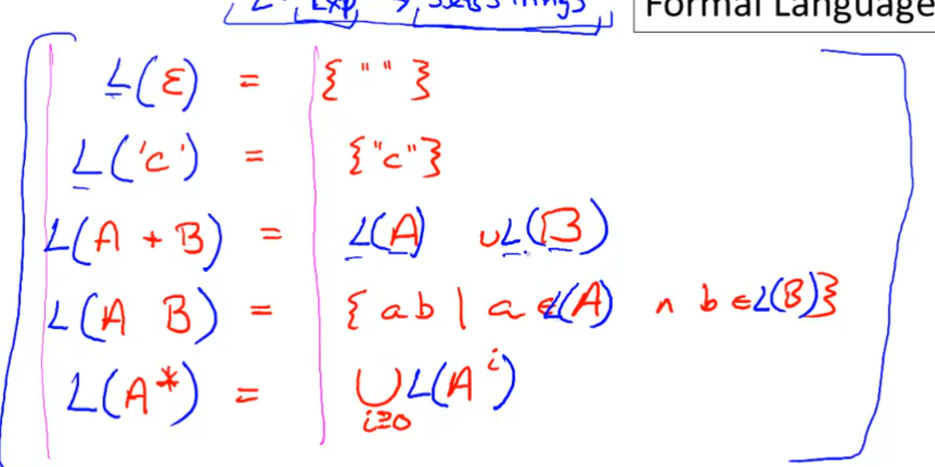 L : Exp → Sets Strings
Formal Language
L(ε) = {""}
L('c') = {"c"}
L(A + B) = L(A) ∪ L(B)
L(A B) = {ab | a ∈ L(A) ∧ b ∈ L(B)}
L(A*) = ⋃ i≥0 L(Aⁱ)